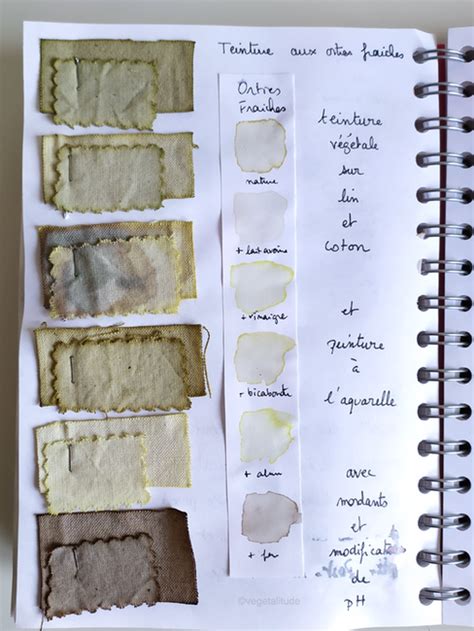 Teinture aux orties fraiches
Orties
Fraiches
nature
+ lait avoine
+ vinaigre
+ bicabonate
+ alun
+ fer
teinture
végétale
sur
lin
et
coton
et
peinture
à
l'aquarelle
avec
mordants
et
modificateurs
de
pH
©vegetalitude